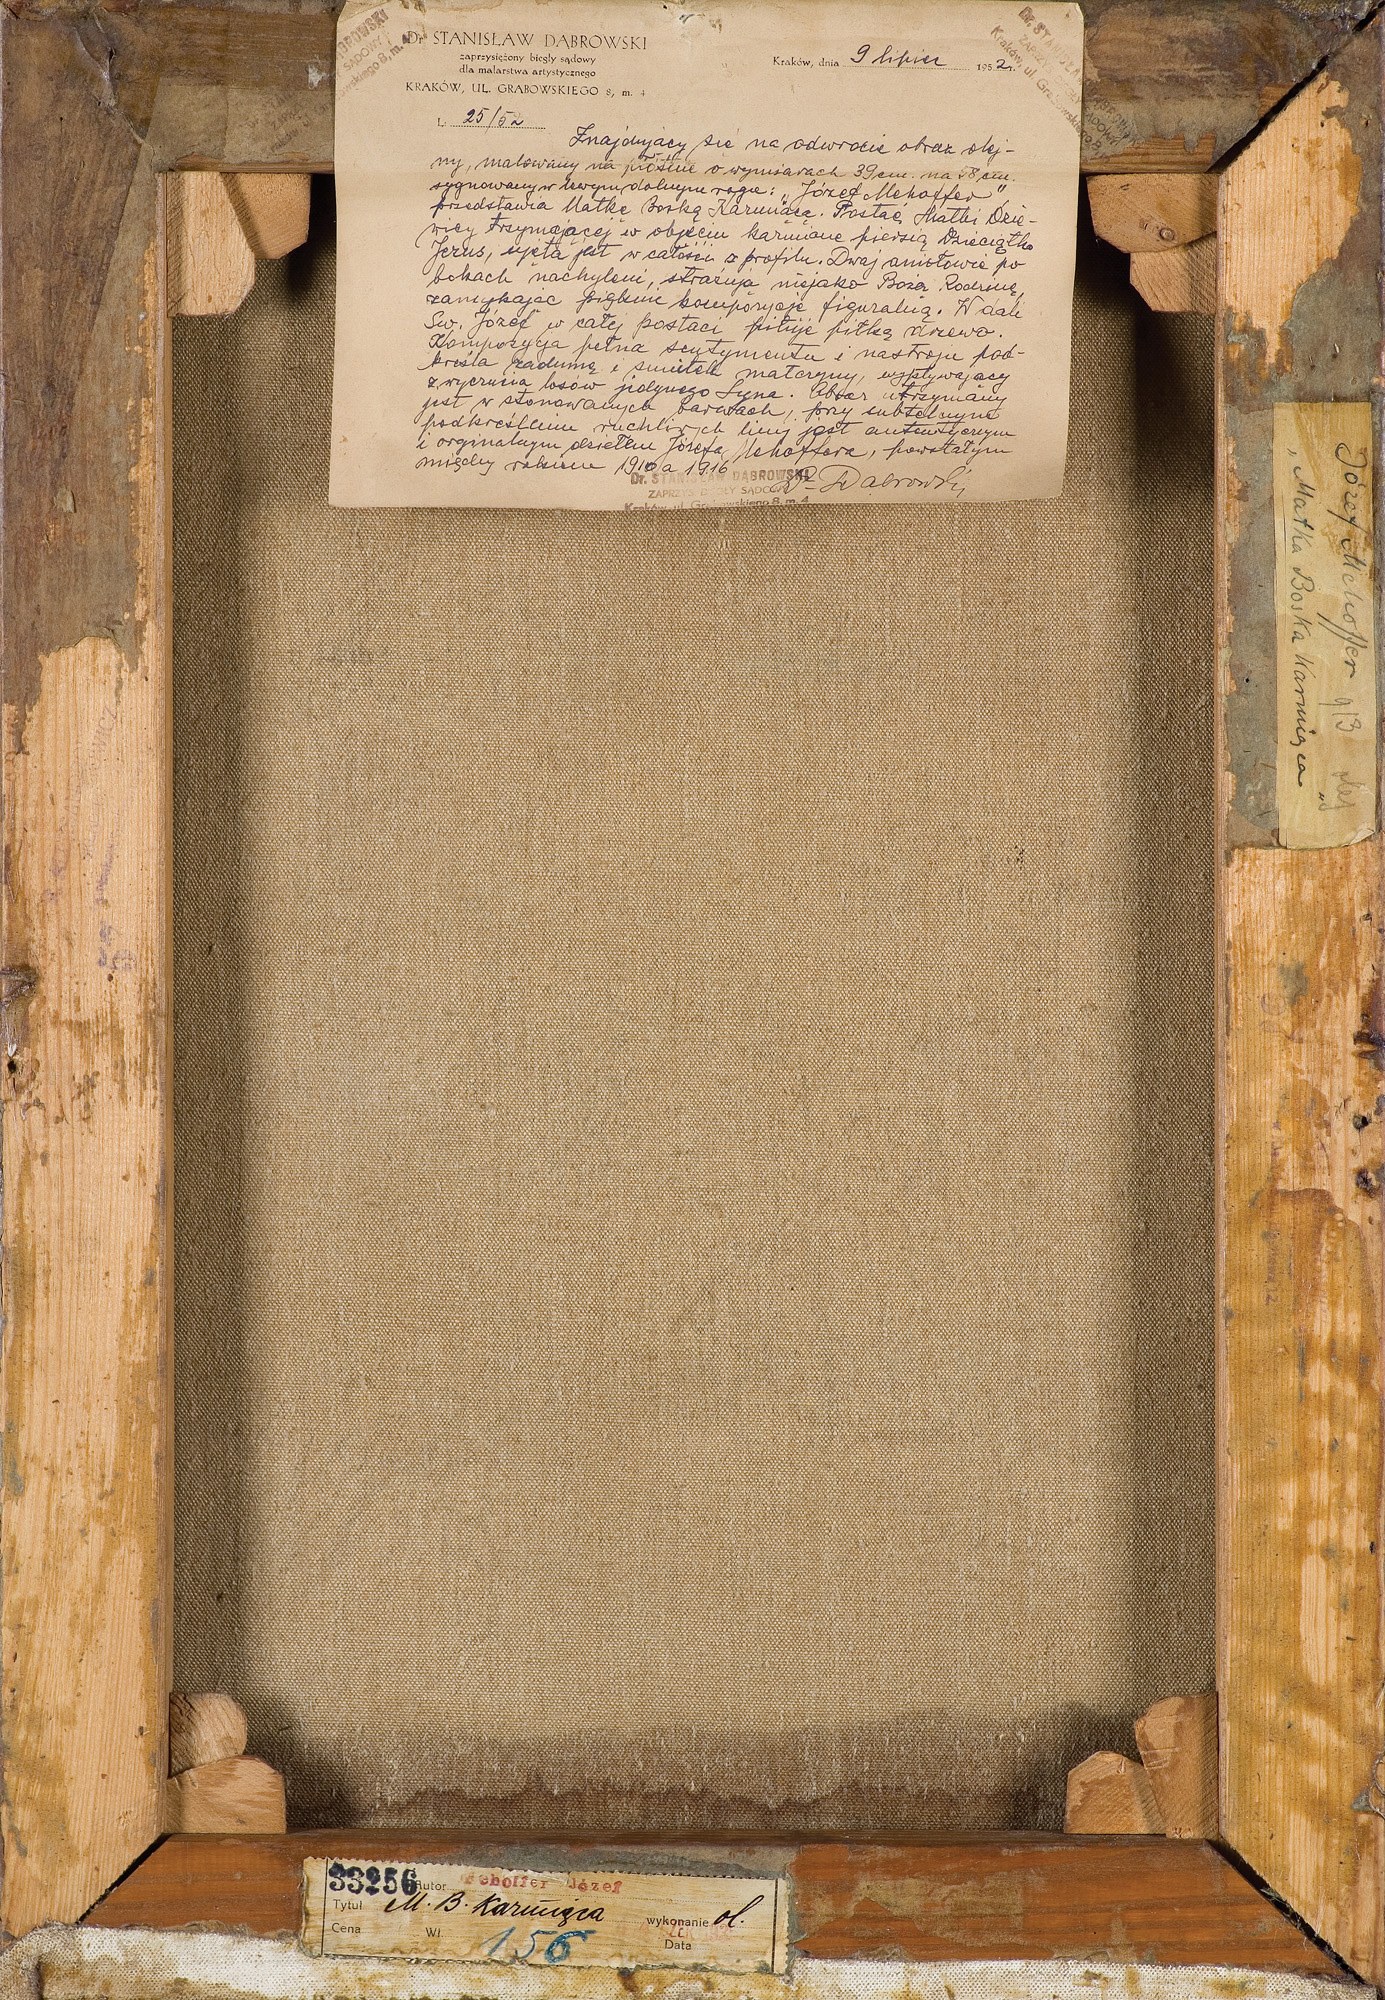 Dr STANISŁAW DĄBROWSKI
zaprzysiężony biegły sądowy
dla malarstwa artystycznego
KRAKÓW, UL. GRABOWSKIEGO 8, m. 4
Kraków, dnia 9 lipiec 1952 r.
L. 25/52
Znajdujący się na odwrocie obraz olej-
ny, malowany na płótnie o wymiarach 39 cm. na 58 cm.
sygnowany w lewym dolnym rogu: "Józef Mehoffer"
przedstawia Matkę Boską Karmiącą. Postać Matki Dzie-
wicy trzymającej w objęciu karmione piersią Dzieciątko
Jezus, ujęta jest w całości z profilu. Dwaj aniołowie po
bokach nachyleni, strażują niejako Bożej Rodzinie,
zamykając pięknie kompozycję figuralną. W dali
Św. Józef w całej postaci piłuje piłką drzewo.
Kompozycja pełna sentymentu i nastroju pod-
kreśla zadumę i smutek materyny, wypływający
z wyczucia losów jedynego Syna. Obraz utrzymany
jest w stonowanych barwach, przy subtelnym
podkreśleniu ruchliwych linij jest autentycznym
i orginalnym dziełem Józefa Mehoffera, powstałym
między rokiem 1910 a 1916
Dr. Dąbrowski
Dr. STANISŁAW DĄBROWSKI
ZAPRZYS. BIEGŁY SĄDOWY
Kraków, ul. Grabowskiego 8, m. 4
Józef Mehoffer 9/3 olej
"Matka Boska Karmiąca"
33256
Autor Mehoffer Józef
Tytuł M. B. Karmiąca
wykonanie ol.
Cena Wł. 156
Data